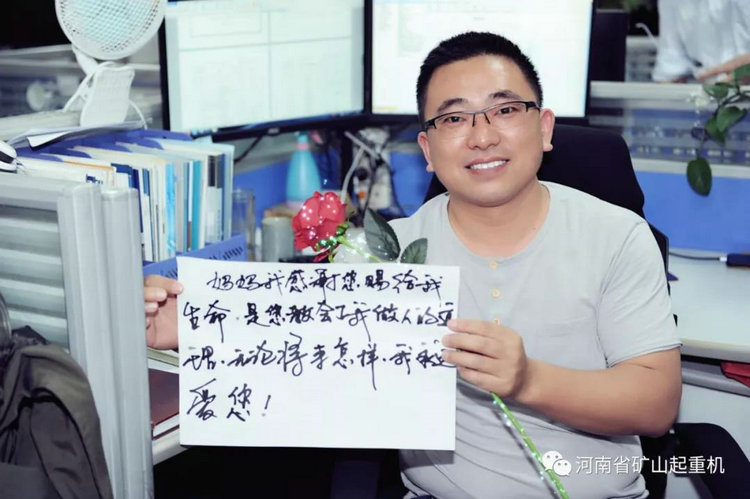 妈妈我感谢您赐给我
生命，是您教会了我做人的道
理，无论将来怎样，我永远
爱您！
河南省矿山起重机